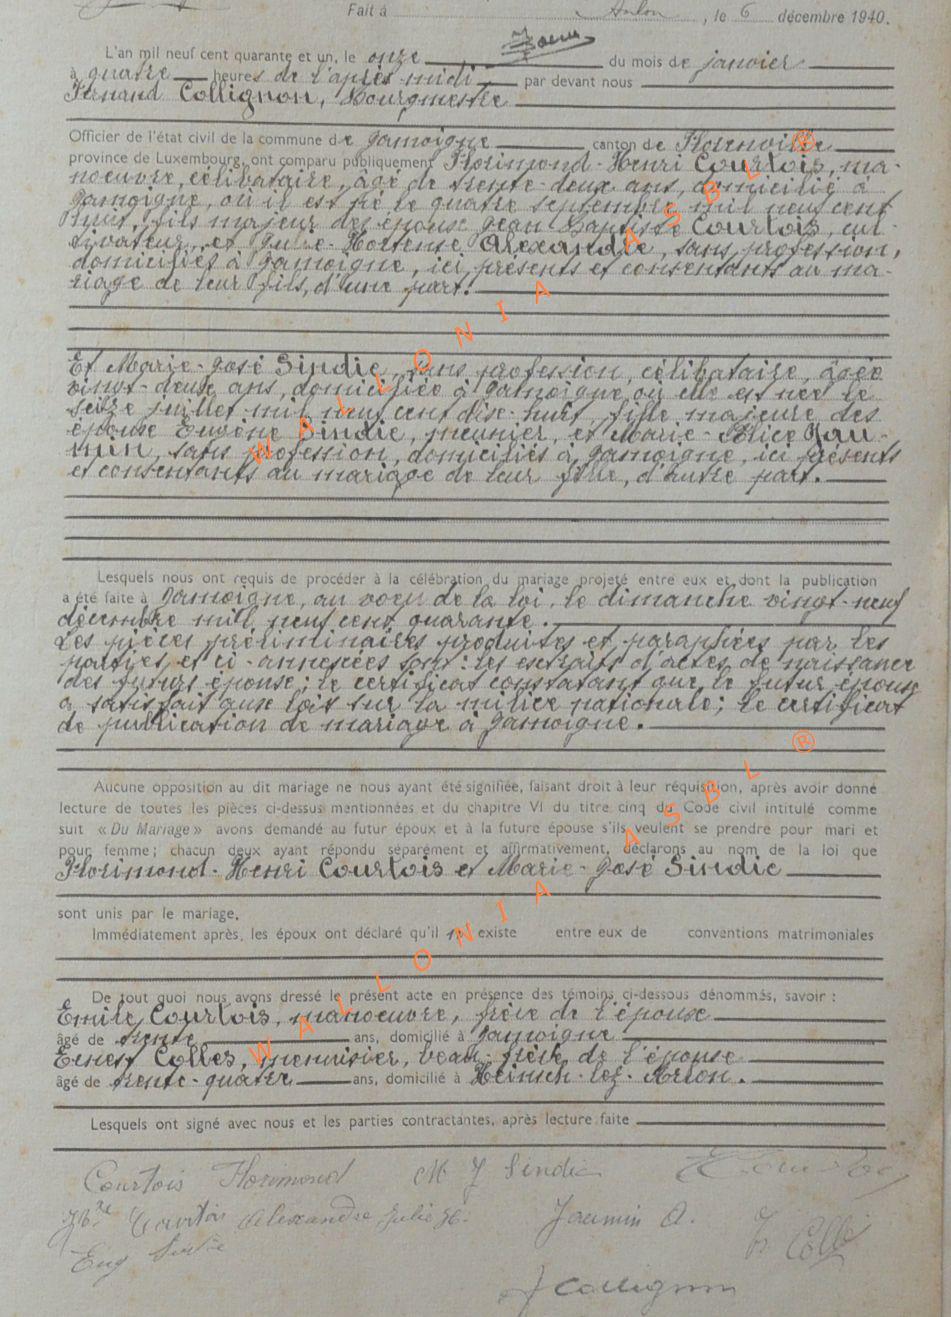 Fait à Arlon, le 6 décembre 1940.
L'an mil neuf cent quarante et un, le onze du mois de janvier
à quatre heures de l'après-midi par devant nous
Fernand Collignon, Bourgmestre
Officier de l'état civil de la commune de Jamoigne canton de Florenville
province de Luxembourg, ont comparu publiquement Florimond-Henri Courtois, ma-
noeuvre, célibataire, âgé de trente-deux ans, domicilié à
Jamoigne, où il est né le quatre septembre mil neuf cent
huit, fils majeur des époux Jean-Baptiste Courtois, cul-
tivateur, et Julie-Hortense Alexandre, sans profession,
domiciliés à Jamoigne, ici présents et consentants au ma-
riage de leur fils, d'une part.
Et Marie-José Sindic, sans profession, célibataire, âgée
vingt-deux ans, domiciliée à Jamoigne où elle est née le
seize juillet mil neuf cent dix-huit, fille majeure des
époux Eugène Sindic, meunier, et Marie-Alice Jau-
min, sans profession, domiciliés à Jamoigne, ici présents
et consentants au mariage de leur fille, d'autre part.
Lesquels nous ont requis de procéder à la célébration du mariage projeté entre eux et dont la publication
a été faite à Jamoigne, au voeu de la loi, le dimanche vingt-neuf
décembre mil neuf cent quarante.
Les pièces préliminaires produites et paraphées par les
parties et ci-annexées sont : les extraits d'actes de naissance
des futurs époux ; le certificat constatant que le futur époux
a satisfait aux lois sur la milice nationale ; le certificat
de publication de mariage à Jamoigne.
Aucune opposition au dit mariage ne nous ayant été signifiée, faisant droit à leur réquisition, après avoir donné
lecture de toutes les pièces ci-dessus mentionnées et du chapitre VI du titre cinq du Code civil intitulé comme
suit « Du Mariage » avons demandé au futur époux et à la future épouse s'ils veulent se prendre pour mari et
pour femme ; chacun deux ayant répondu séparément et affirmativement, déclarons au nom de la loi que
Florimond-Henri Courtois et Marie-José Sindic
sont unis par le mariage.
Immédiatement après, les époux ont déclaré qu'il existe entre eux de conventions matrimoniales
De tout quoi nous avons dressé le présent acte en présence des témoins ci-dessous dénommés, savoir :
Emile Courtois, manoeuvre, frère de l'époux
âgé de trente ans, domicilié à Jamoigne
Ernest Colles, menuisier, beau-frère de l'épouse
âgé de trente-quatre ans, domicilié à Heinsch-lez-Arlon.
Lesquels ont signé avec nous et les parties contractantes, après lecture faite
Courtois Florimond M J Sindic
J Bte Courtois Alexandre Julie H. Jaumin A.
Eug Sindic
F Collignon
WALLONIA ASBL ®
WALLONIA ASBL ®